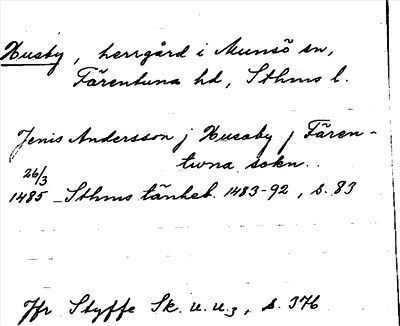 Husby, herrgård i Munsö sn,
Färentuna hd, Sthms l.
Jenis Andersson j Husaby j Fären-
tuna sokn.
26/3
1485 - Sthms tänkeb. 1483-92, s. 83
Jfr Styffe Sk. u. u.3, s. 376